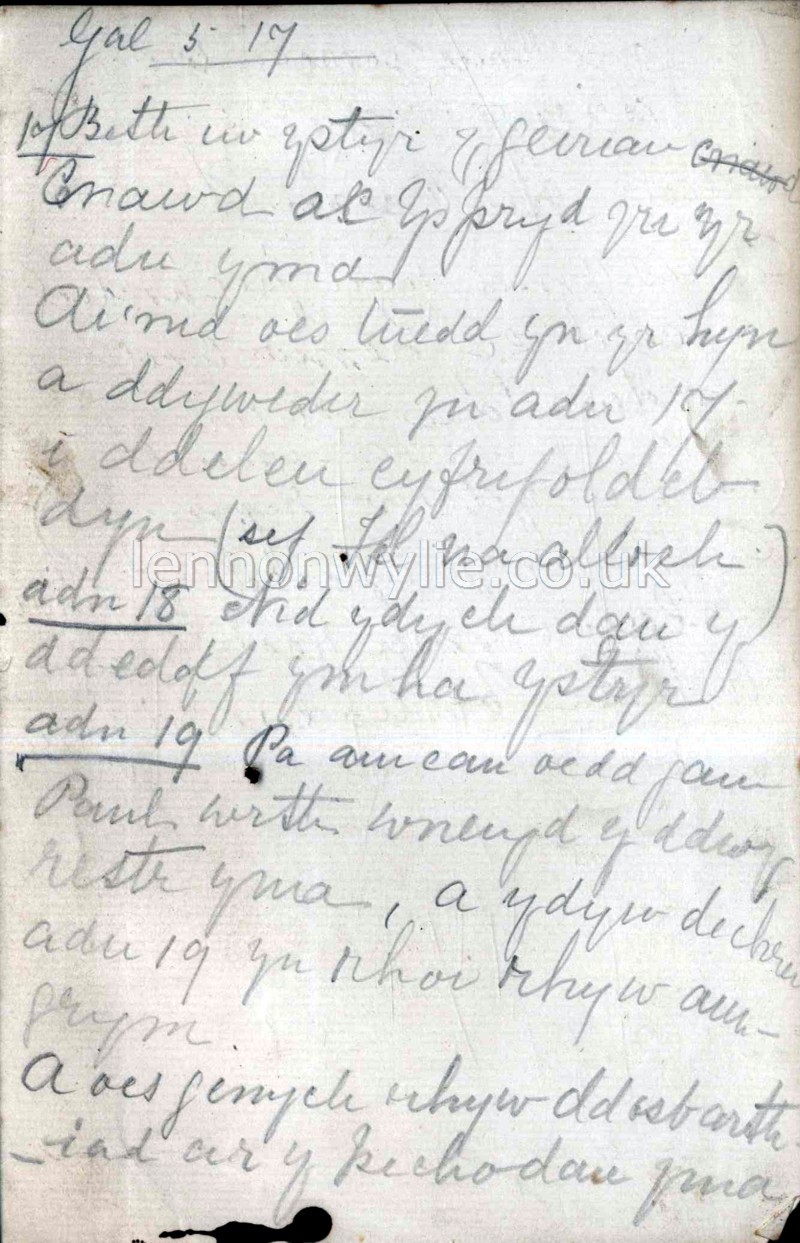 Gal 5 17
17 Beth iw ystyr y geiriau Cnawd
Cnawd ac Yspryd yn yr
adn yma
Ai'nid oes tuedd yn yr hyn
a ddywedir yn adn 17
i ddeleu cyfrifoldeb
dyn (sef fel na alloch)
lennonwylie.co.uk
adn 18 Nid ydych dan y
ddeddf ymha ystyr
adn 19 Pa amcan oedd gan
Paul wrth wneuyd y ddwy
restr yma, a ydyw dechreu
adn 19 yn rhoi rhyw am-
grym
A oes genych rhyw ddosbarth-
-iad ar y pechodau yma